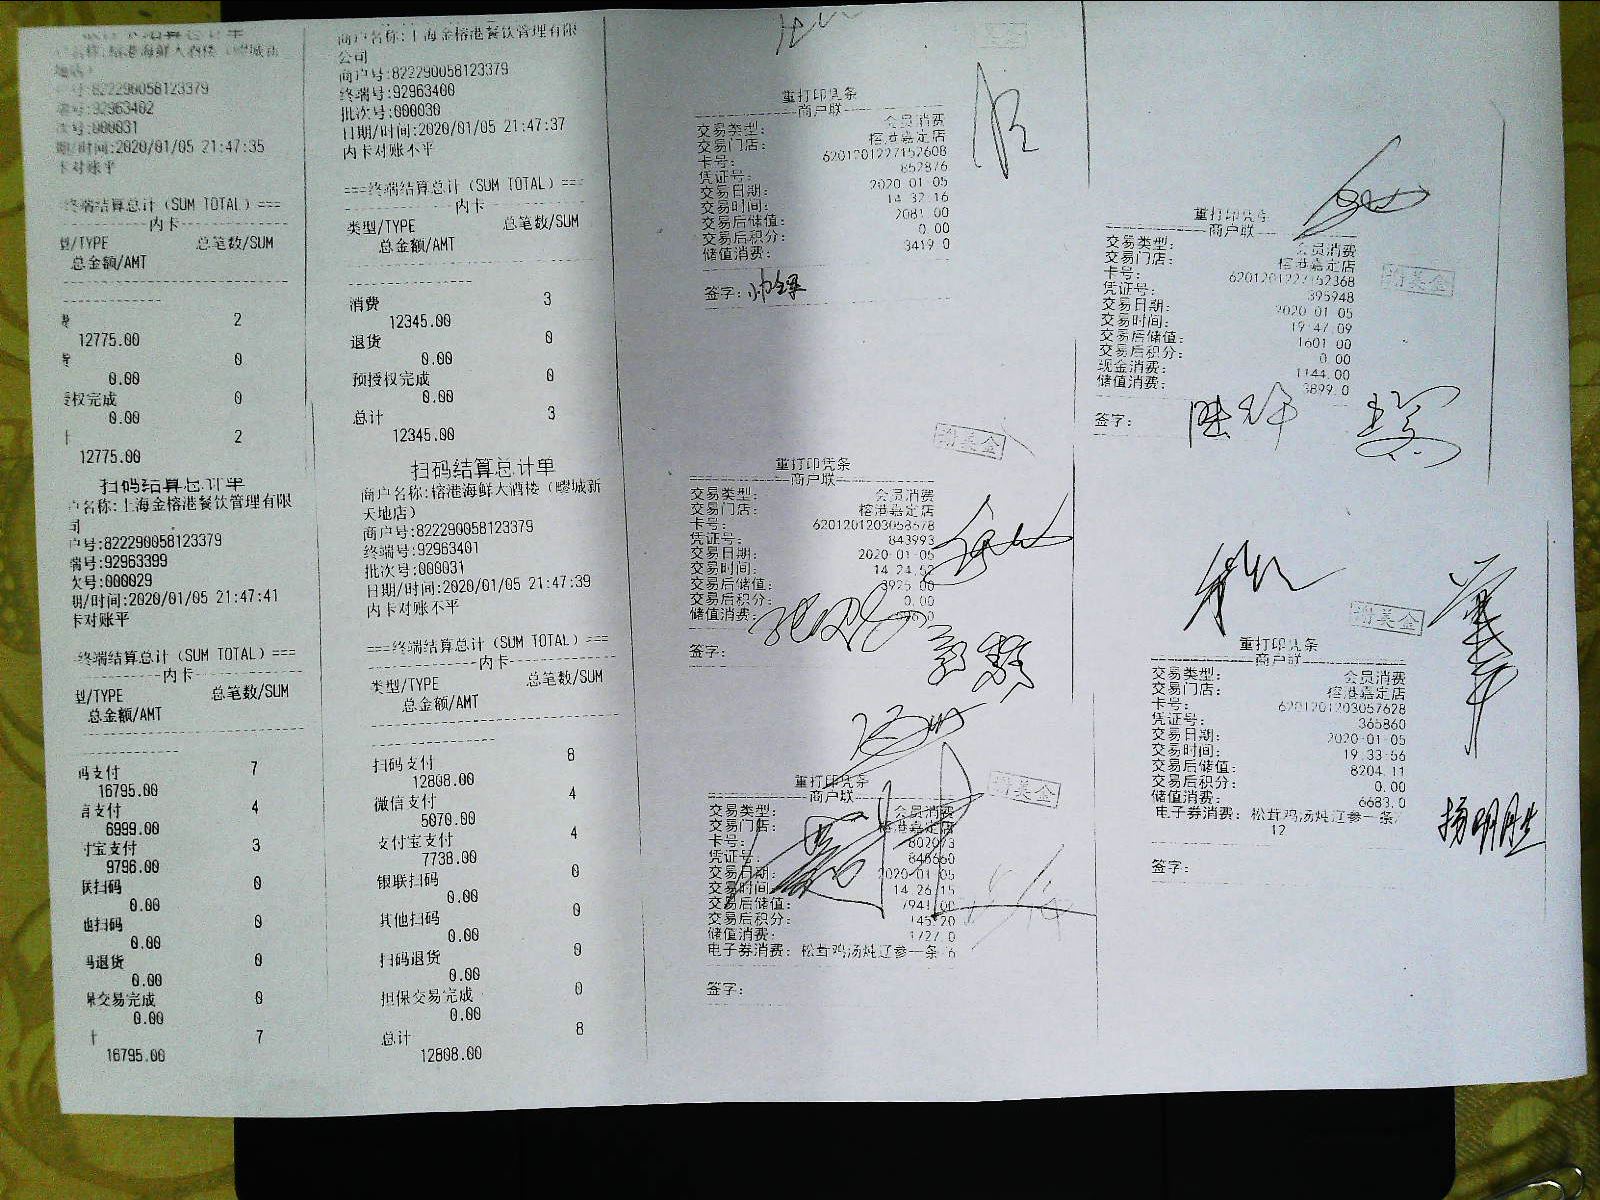 榕港海鲜大酒楼（疁城新
地店）
号:822290058123379
号:92963402
次号:000031
期/时间:2020/01/05 21:47:35
卡对账平
终端结算总计（SUM TOTAL）===
内卡
型/TYPE 总笔数/SUM
总金额/AMT
费 2
12775.00
货 0
0.00
授权完成 0
0.00
计 2
12775.00
扫码结算总计单
户名称:上海金榕港餐饮管理有限
司
户号:822290058123379
端号:92963399
次号:000029
期/时间:2020/01/05 21:47:41
卡对账平
终端结算总计（SUM TOTAL）===
内卡
型/TYPE 总笔数/SUM
总金额/AMT
码支付 7
16795.00
信支付 4
6999.00
付宝支付 3
9796.00
联扫码 0
0.00
他扫码 0
0.00
码退货 0
0.00
保交易完成 0
0.00
计 7
16795.00
商户名称:上海金榕港餐饮管理有限
公司
商户号:822290058123379
终端号:92963400
批次号:000030
日期/时间:2020/01/05 21:47:37
内卡对账不平
===终端结算总计（SUM TOTAL）===
内卡
类型/TYPE 总笔数/SUM
总金额/AMT
消费 3
12345.00
退货 0
0.00
预授权完成 0
0.00
总计 3
12345.00
扫码结算总计单
商户名称:榕港海鲜大酒楼（疁城新
天地店）
商户号:822290058123379
终端号:92963401
批次号:000031
日期/时间:2020/01/05 21:47:39
内卡对账不平
===终端结算总计（SUM TOTAL）===
内卡
类型/TYPE 总笔数/SUM
总金额/AMT
扫码支付 8
12808.00
微信支付 4
5070.00
支付宝支付 4
7738.00
银联扫码 0
0.00
其他扫码 0
0.00
扫码退货 0
0.00
担保交易完成 0
0.00
总计 8
12808.00
重打印凭条
商户联
交易类型: 会员消费
交易门店: 榕港嘉定店
卡号: 6201201227152608
凭证号: 852876
交易日期: 2020-01-05
交易时间: 14:32:16
交易后储值: 2081.00
交易后积分: 0.00
储值消费: 3419.0
签字:
重打印凭条
商户联
交易类型: 会员消费
交易门店: 榕港嘉定店
卡号: 6201201203058578
凭证号: 843993
交易日期: 2020-01-05
交易时间: 14:24:52
交易后储值: 3925.00
交易后积分: 0.00
储值消费:
签字:
重打印凭条
商户联
交易类型: 会员消费
交易门店: 榕港嘉定店
卡号: 802073
凭证号: 848660
交易日期: 2020-01-05
交易时间: 14:26:15
交易后储值: 7941.00
交易后积分: 145.20
储值消费: 1727.0
电子券消费: 松茸鸡汤炖辽参一条/6
签字:
重打印凭条
商户联
交易类型: 会员消费
交易门店: 榕港嘉定店
卡号: 6201201227152368
凭证号: 395948
交易日期: 2020-01-05
交易时间: 19:47:09
交易后储值: 1601.00
交易后积分: 0.00
现金消费: 1144.00
储值消费: 3899.0
签字:
重打印凭条
商户联
交易类型: 会员消费
交易门店: 榕港嘉定店
卡号: 6201201203057628
凭证号: 365860
交易日期: 2020-01-05
交易时间: 19:33:56
交易后储值: 8204.11
交易后积分: 0.00
储值消费: 6683.0
电子券消费: 松茸鸡汤炖辽参一条/
12
杨明胜
签字: